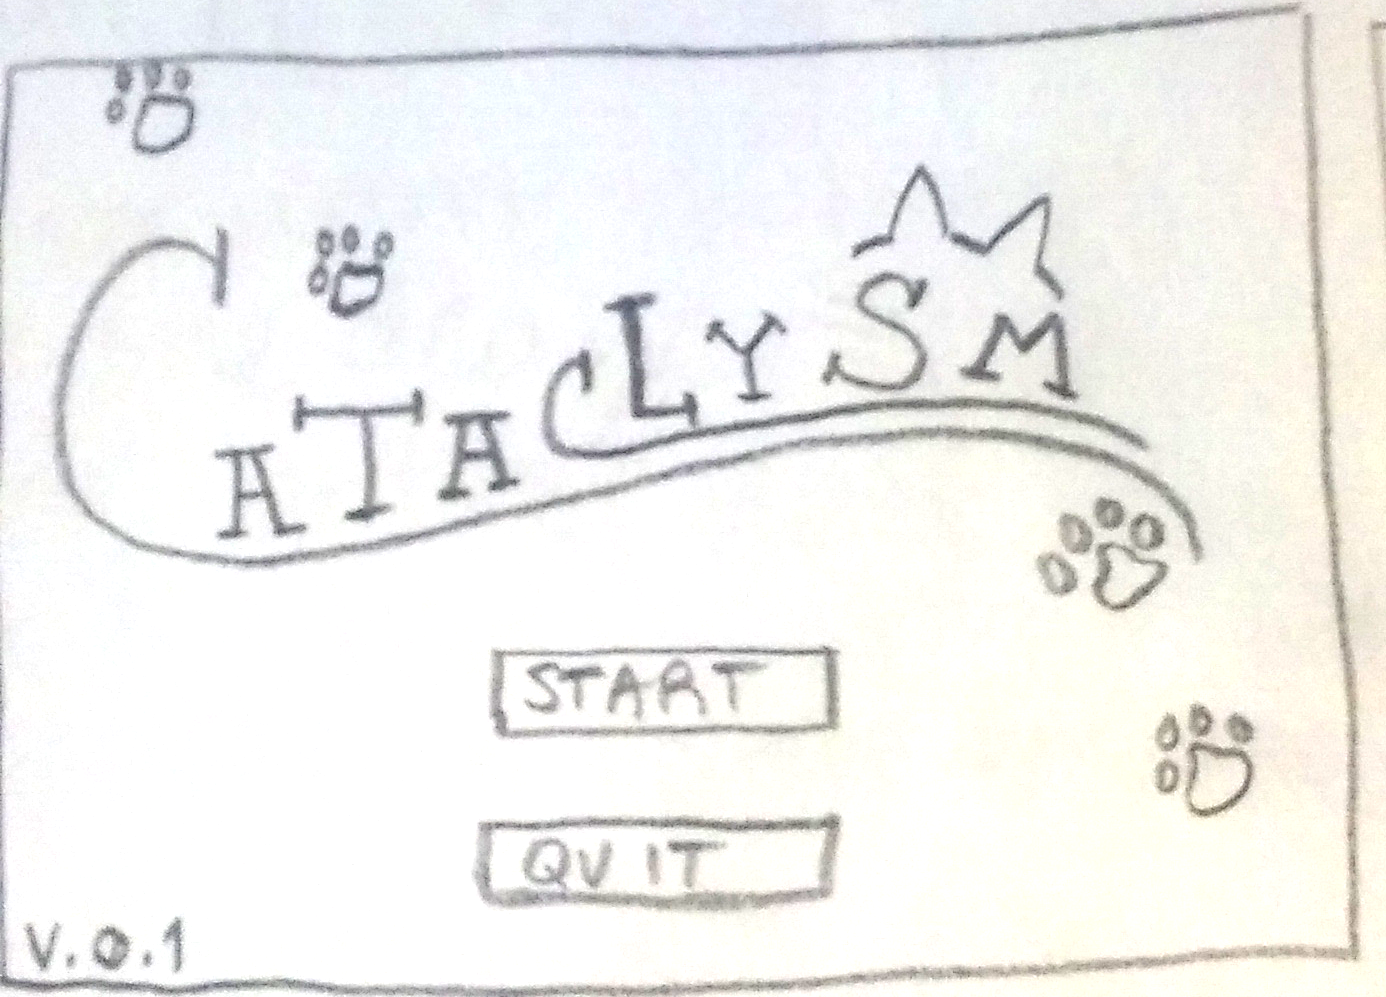 CATACLYSM
START
QUIT
V.0.1